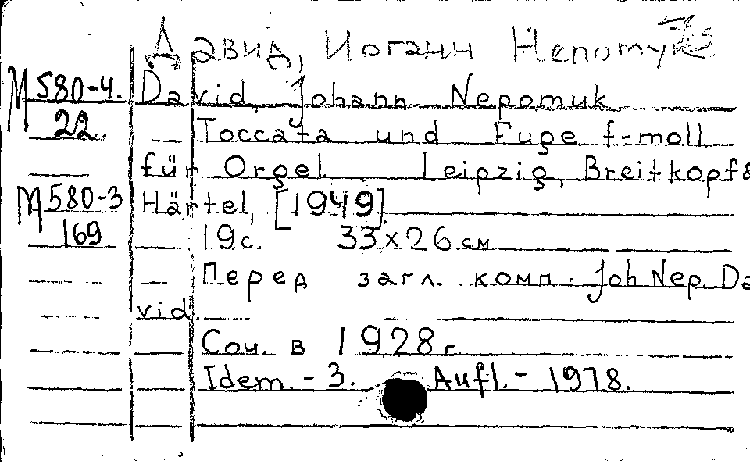 Давид, Иоганн Непомук
М580-4. David, Johann Nepomuk
22. Toccata und Fuge f-moll
für Orgel. Leipzig, Breitkopf&
М580-3 Härtel, [1949]
169 19с. 33x26 см
Перед загл. комп. Joh Nep Da
vid
Соч. в 1928 г
Idem. - 3. Aufl. - 1978.